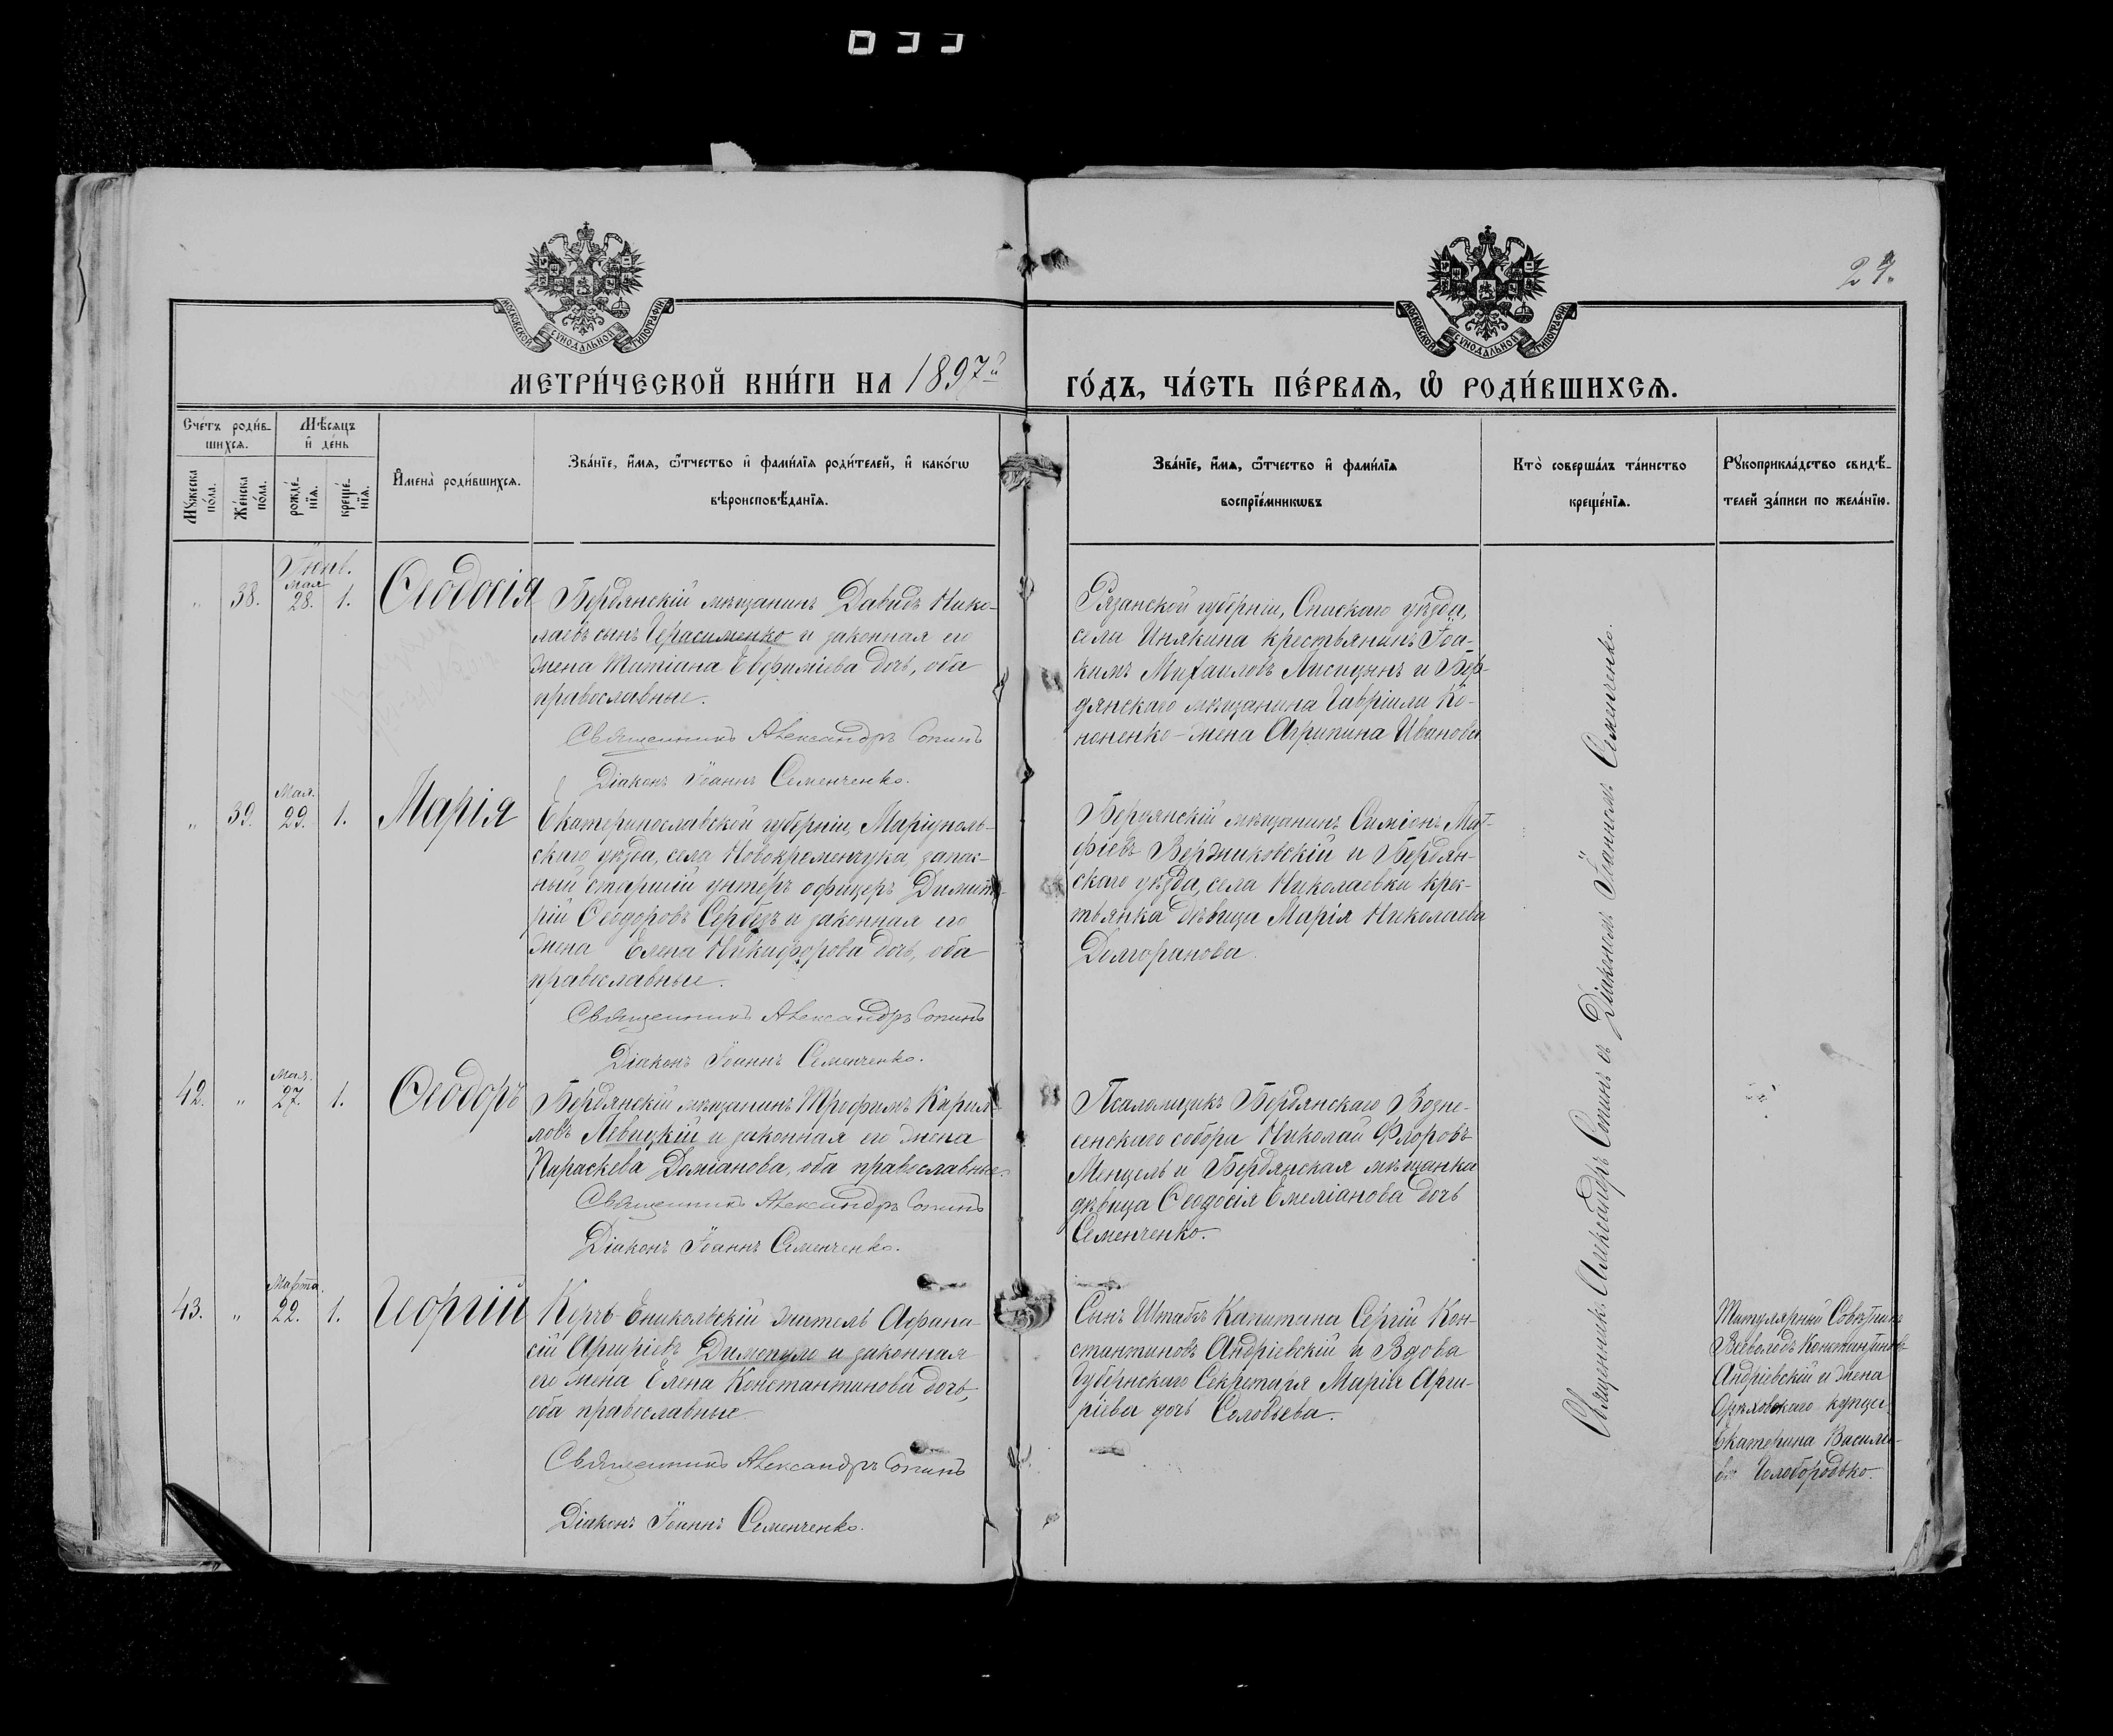 27.
МОСКОВСКОЙ СѴНОДАЛЬНОЙ ТИПОГРАФІИ
МОСКОВСКОЙ СѴНОДАЛЬНОЙ ТИПОГРАФІИ
МЕТРИ́ЧЕСКОЙ КНИ́ГИ НА 1897й
ГО́ДЪ, ЧА́СТЬ ПЕ́РВАѦ, Ѽ РОДИ́ВШИХСѦ.
Сче́тъ роди́в-
шихсѧ.
Мѣ́сѧцъ
и҆ де́нь
Мꙋ́жеска
по́ла.
Же́нска
по́ла.
рожде́-
нїѧ.
креще́-
нїѧ.
И҆мена̀ роди́вшихсѧ.
Зва́нїе, и҆́мѧ, ѻ҆́тчество и҆ фами́лїѧ роди́телей, и҆ како́гѡ
вѣроисповѣ́данїѧ.
Зва́нїе, и҆́мѧ, ѻ҆́тчество и҆ фами́лїѧ
воспрїе́мникѡвъ
Кто̀ соверша́лъ та́инство
креще́нїѧ.
Рꙋкоприкла́дство свидѣ́-
телей за́писи по жела́нїю.
Іюнь.
Мая
„ 38. 28. 1. Ѳеодосія
Бердянскій мѣщанинъ Давидъ Нико-
лаевъ сынъ Герасименко и законная его
жена Татіана Евфиміева дочь, оба
православные.
Священникъ Александръ Сопинъ
Діаконъ Іоаннъ Семенченко.
Рязанской губерніи, Спаскаго уѣзда,
села Инякина крестьянинъ Іоа-
кимъ Михаиловъ Лисицынъ и Бер-
дянскаго мѣщанина Гавріила Ко-
ноненко - жена Агрипина Иванова
Мая.
„ 39. 29. 1. Марія
Екатеринославской губерніи, Маріуполь-
скаго уѣзда, села Новокременчука, запас-
ный старшій унтеръ офицеръ Димит-
рій Ѳеодоровъ Сербезъ и законная его
жена Елена Никифорова дочь, оба
православные.
Священникъ Александръ Сопинъ
Діаконъ Іоаннъ Семенченко.
Бердянскій мѣщанинъ Симіонъ Мат-
фіевъ Вержиковскій и Бердян-
скаго уѣзда, села Николаевки крес-
тьянка дѣвица Марія Николаева
Долгоранова.
Мая.
42. „ 27. 1. Ѳеодоръ
Бердянскій мѣщанинъ Трофимъ Карил-
ловъ Левицкій и законная его жена
Параскева Даміанова, оба православные.
Священникъ Александръ Сопинъ
Діаконъ Іоаннъ Семенченко.
Псаломщикъ Бердянскаго Возне-
сенскаго собора Николай Флоровъ
Менцель и Бердянская мѣщанка
дѣвица Ѳеодосія Емеліанова дочь
Семенченко.
Марта.
43. „ 22. 1. Георгій
Керчь-Еникольскій житель Афана-
сій Аргиріевъ Димопуло и законная
его жена Елена Константинова дочь,
оба православные.
Священникъ Александръ Сопинъ
Діаконъ Іоаннъ Семенченко.
Сынъ Штабсъ Капитана Сергій Кон-
стантиновъ Андріевскій и Вдова
Губернскаго Секретаря Марія Арги-
ріева дочь Соловьева.
Священникъ Александръ Сопинъ съ Діакономъ Іоанномъ Семенченко.
Титулярный Совѣтникъ
Всеволодъ Константиновъ
Андріевскій и жена
Орѣховскаго купца
Екатерина Василье-
ва Голобородько.